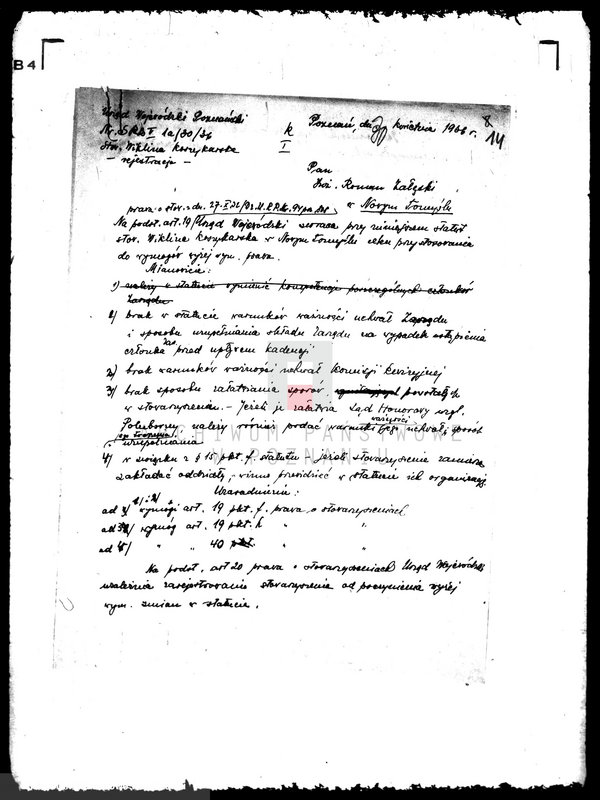 B4
Urząd Wojewódzki Poznański
Nr. 1a/30/36
Stow. Wiklina Koszykarska
- rejestracja -
k
I
Poznań, dn. kwietnia 1936 r.
8
14
Pan
Inż. Roman Załęski
w Nowym Tomyślu
prawa o stow. z dn. 27-X-32
Na podst. art. 19 Urząd Wojewódzki zwraca przy niniejszem statut
stow. Wiklina Koszykarska w Nowym Tomyślu celem przystosowania
do wymogów wyżej wym. prawa.
Mianowicie:
1) należy w statucie wymienić kompetencje poszczególnych członków
Zarządu
1) brak w statucie warunków ważności uchwał Zarządu
i sposobu uzupełniania składu Zarządu na wypadek ustąpienia
członka przed upływem kadencji
2) brak warunków ważności uchwał Komisji Rewizyjnej
3) brak sposobu załatwiania sporów powstałych
w stowarzyszeniu. - Jeżeli je załatwia Sąd Honorowy wzgl.
Polubowny, należy również podać warunki ważności jego uchwał, sposób
uzupełniania
4) w związku z § 15 pkt. f. statutu - jeżeli stowarzyszenie zamierza
zakładać oddziały, winno przewidzieć w statucie ich organizację
Uzasadnienie:
ad 1/ i 2/ wymogi art. 19 pkt. f. prawa o stowarzyszeniach
ad 3/ wymóg art. 19 pkt. h " "
ad 4/ " " 40 pkt. " "
Na podst. art 20 prawa o stowarzyszeniach Urząd Wojewódzki
uzależnia zarejestrowanie stowarzyszenia od poczynienia wyżej
wym. zmian w statucie.
ARCHIWUM PAŃSTWOWE
W POZNANIU